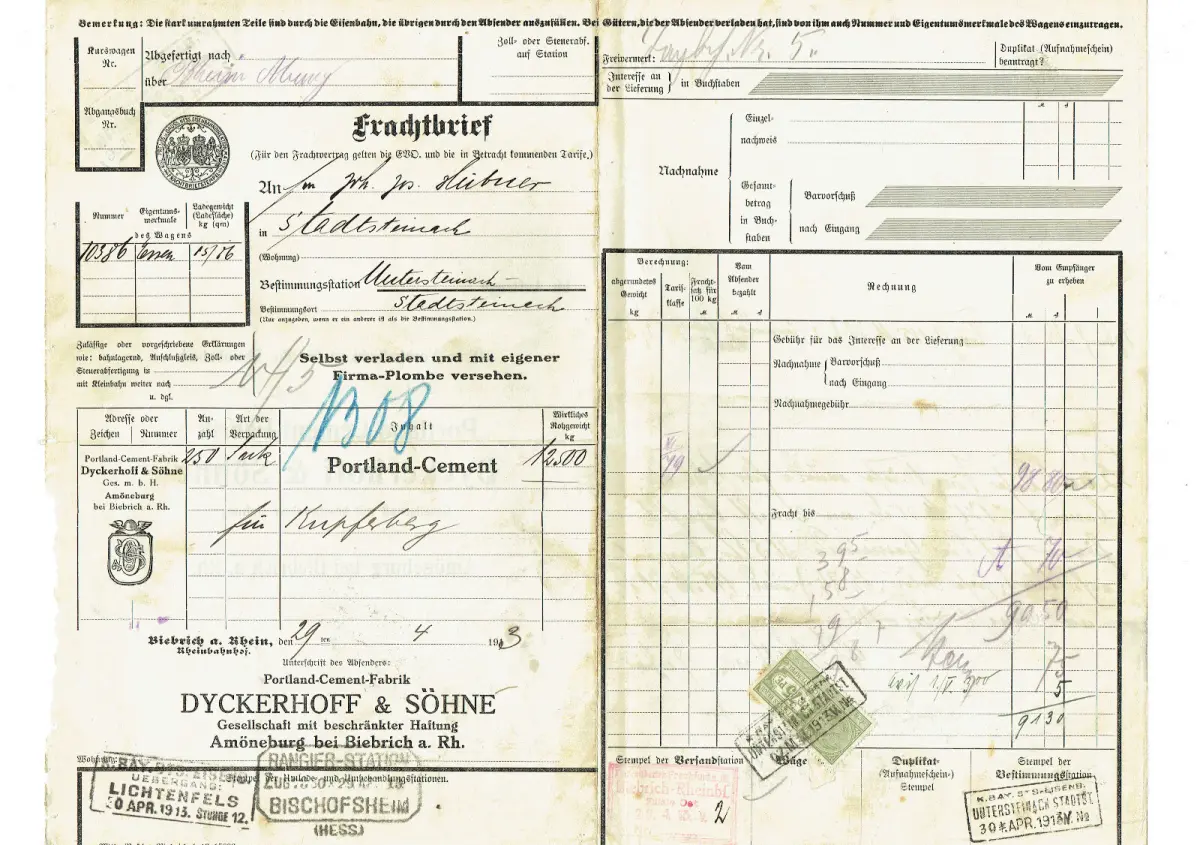 Bemerkung: Die stark umrahmten Teile sind durch die Eisenbahn, die übrigen durch den Absender auszufüllen. Bei Gütern, die der Absender verladen hat, sind von ihm auch Nummer und Eigentumsmerkmale des Wagens einzutragen.
Kurswagen
Nr.
Abgefertigt nach
über
Zoll- oder Steuerabf.
auf Station
Abgangsbuch
Nr.
Frachtbrief
(Für den Frachvertrag gelten die EVO. und die in Betracht kommenden Tarife.)
An
Hübner
in Stadtsteinach
(Wohnung)
Bestimmungsstation Untersteinach
Bestimmungsort Stadtsteinach
(Nur anzugeben, wenn er ein anderer ist als die Bestimmungsstation.)
Nummer
Eigentums-
merkmale
Ladegewicht
(Ladefläche)
kg (qm)
des Wagens
10386 Essen
Zulässige oder vorgeschriebene Erklärungen
wie: bahnlagernd, Anschlußgleis, Zoll- oder
Steuerabfertigung in
mit Kleinbahn weiter nach
u. dgl.
Selbst verladen und mit eigener
Firma-Plombe versehen.
Adresse oder
Zeichen Nummer
An-
zahl
Art der
Verpackung
Inhalt
Wirkliches
Rohgewicht
kg
Portland-Cement-Fabrik
Dyckerhoff & Söhne
Ges. m. b. H.
Amöneburg
bei Biebrich a. Rh.
250 Sack
Portland-Cement
12500
für Kupferberg
Biebrich a. Rhein, den 29 ten 4 1913
Rheinbahnhof.
Unterschrift des Absenders:
Portland-Cement-Fabrik
DYCKERHOFF & SÖHNE
Gesellschaft mit beschränkter Haftung
Amöneburg bei Biebrich a. Rh.
Wohnung:
Stempel der Umlade- und Umbehandlungsstationen.
UEBERGANG:
LICHTENFELS
30 APR. 1913. STUNDE 12.
RANGIER-STATION
BISCHOFSHEIM
(HESS)
Freivermerk:
Nr. 5.
Duplikat (Aufnahmeschein)
beantragt?
Interesse an
der Lieferung
in Buchstaben
Nachnahme
Einzel-
nachweis
Gesamt-
betrag
in Buch-
staben
Barvorschuß
nach Eingang
Berechnung:
abgerundetes
Gewicht
kg
Tarif-
klasse
Fracht-
satz für
100 kg
Vom
Absender
bezahlt
Rechnung
Vom Empfänger
zu erheben
Gebühr für das Interesse an der Lieferung
Nachnahme
Barvorschuß
nach Eingang
Nachnahmegebühr
79
98 80
Fracht bis
3 95
1 58
70
90 50
75
5
91 30
Stempel der Versandstation
Wäge
Duplikat-
(Aufnahmeschein-)
Stempel
Stempel der
Bestimmungsstation
Biebrich-Rheinbf
2
K. BAY. STS-EISENB.
UNTERSTEINACH STADTST.
30 APR. 1913 V No